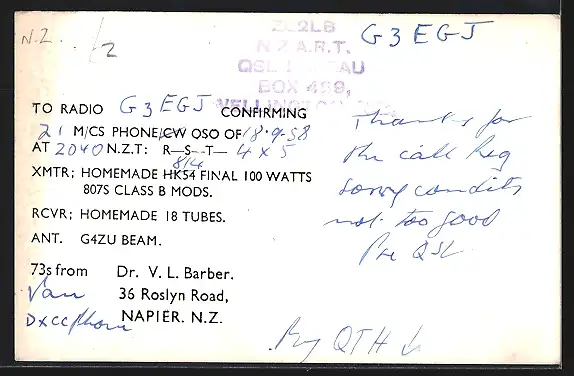 N.Z. /2
ZL2LB
N.Z.A.R.T.
QSL BUREAU
BOX 489,
WELLINGTON
G3EGJ
TO RADIO G3EGJ CONFIRMING
21 M/CS PHONE/CW QSO OF 18·9·58
AT 2040 N.Z.T: R—S—T— 4 x 5
8/14
XMTR; HOMEMADE HK54 FINAL 100 WATTS
807S CLASS B MODS.
RCVR; HOMEMADE 18 TUBES.
ANT. G4ZU BEAM.
73s from Dr. V. L. Barber.
Van 36 Roslyn Road,
DXCC/phone NAPIER. N.Z.
Thanks for
the call Reg
sorry condits
not too good
Pse QSL
My QTH